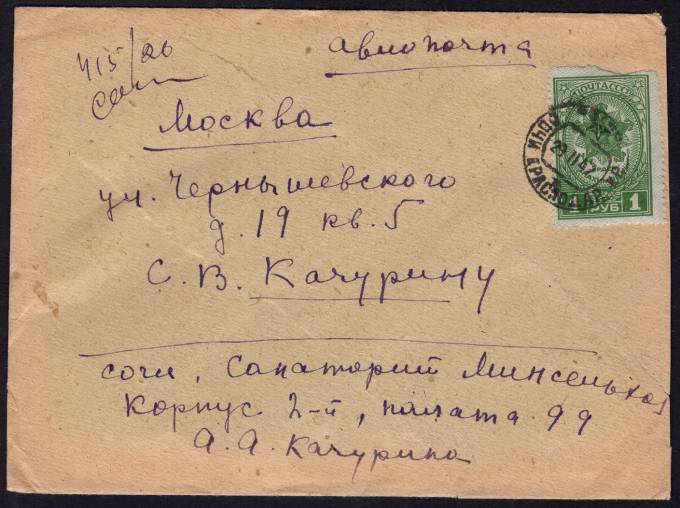 415/26
Авиопочта
Москва
ул. Чернышевского
д. 19 кв. 5
С. В. Качурину
сочи, Санаторий Минсельхоз
Корпус 2-й, палата 99
А. А. Качурина
ПОЧТА СССР
1 РУБ 1
СОЧИ КРАСНОДАР. КР.